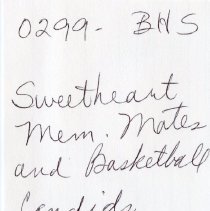 0299- BHS
Sweetheart
Mem. Mates
and Basketball
Candids